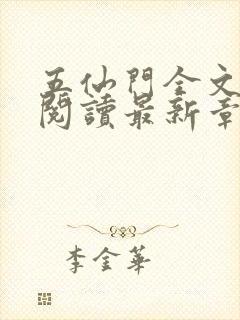 五仙門全文
閱讀最新章
李金華